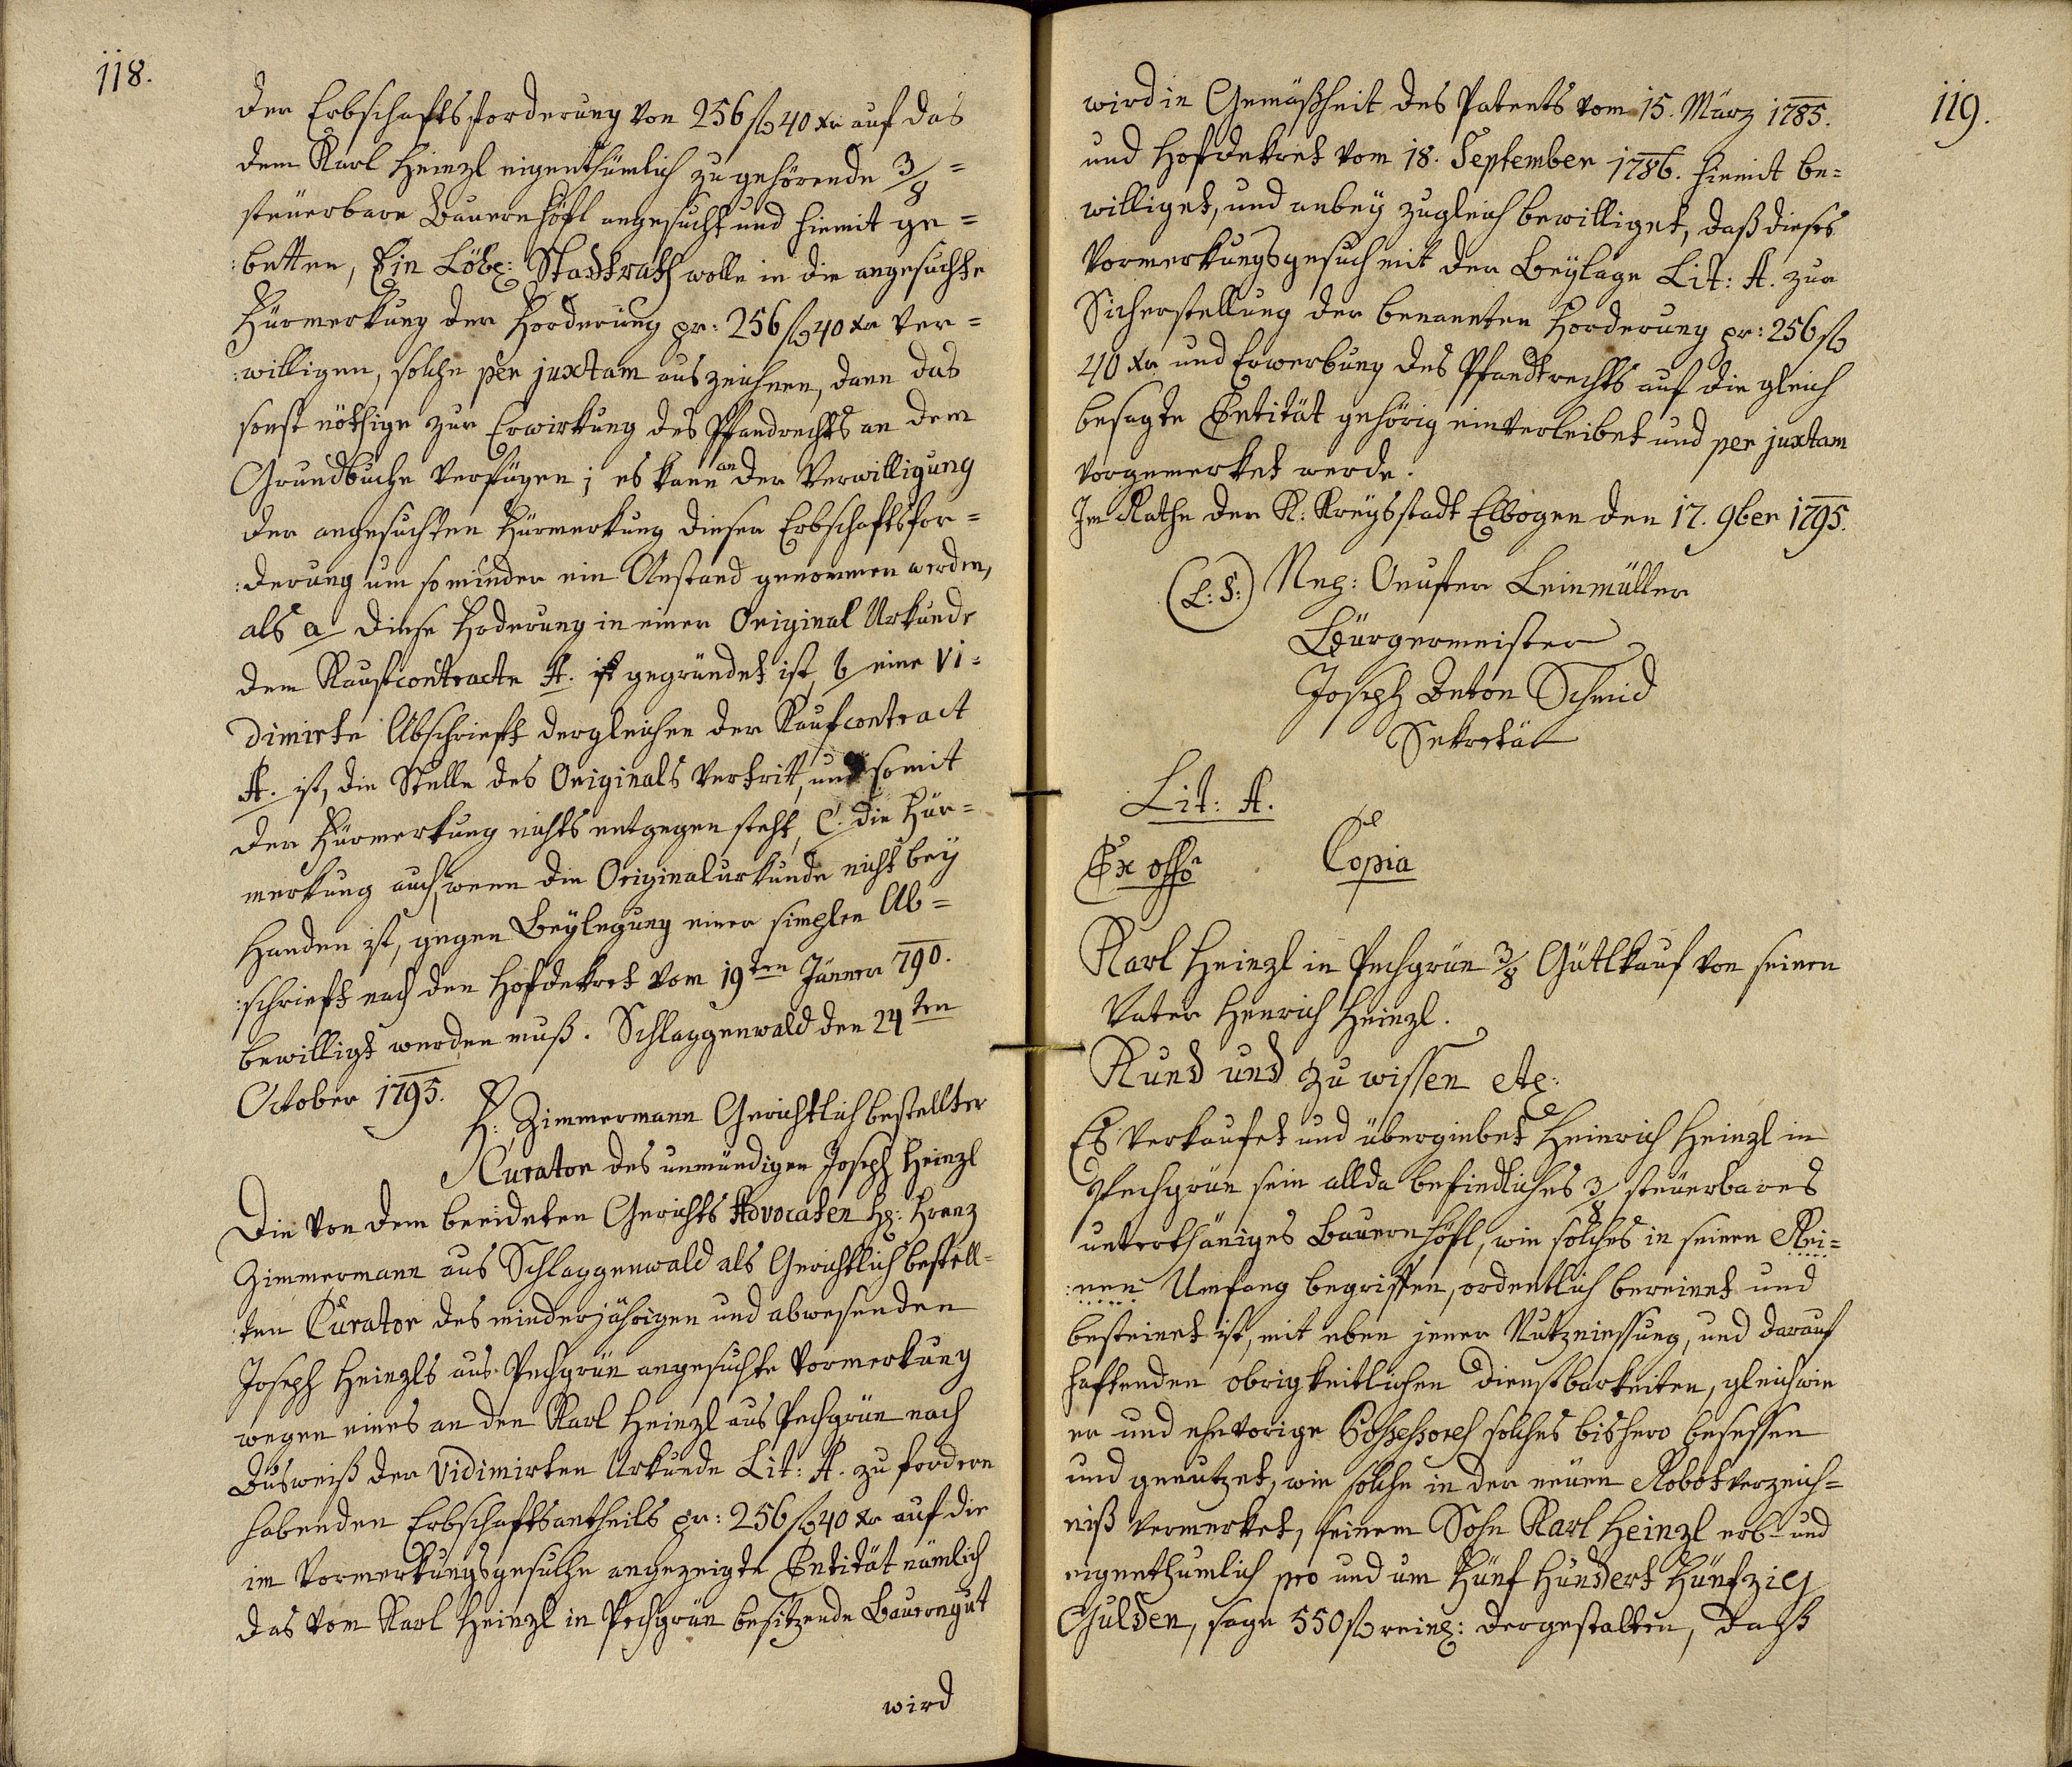 118.
der Erbschaftsforderung von 256 fl 40 xr auf das
dem Karl Heinzl eigenthümlich zu gehörende 3/8 =
steuerbare Bauernhöfl angesucht und hiemit ge=
:betten, Ein Löbl: Stadtrath wolle in die angesuchte
Fürmerkung der Forderung pr: 256 fl 40 xr ver=
:willigen, solche per juxtam auszeichnen, dann das
sonst nöthige zur Erwirkung des Pfandrechts an dem
Grundbuche verfügen; es kann an der Verwilligung
der angesuchten Fürmerkung dieser Erbschaftsfor=
:derung um so minder ein Anstand genommen werden,
als a diese Foderung in einer Original Urkunde
dem Kaufcontracte A. ist gegründet ist, b eine vi=
dimirte Abschrieft dergleichen der Kaufcontract
A. ist, die Stelle des Originals vertritt, und somit
der Fürmerkung nichts entgegen steht, C. die Für=
merkung auch, wenn die Originalurkunde nicht bey
Handen ist, gegen Beylegung einer simplen Ab=
:schrieft nach den Hofdekret vom 19ten Jänner 790.
bewilligt werden muß. Schlaggenwald den 24ten
October 1795.
F: Zimmermann Gerichtlich bestellter
Curator des unmündigen Joseph Heinzl
Die von dem beeideten Gerichts Advocaten H: Franz
Zimmermann aus Schlaggenwald als Gerichtlich bestell=
:ten Curator des minderjährigen und abwesenden
Joseph Heinzls aus Pechgrün angesuchte Vormerkung
wegen eines an den Karl Heinzl aus Pechgrün nach
Ausweiß der vidimirten Urkunde Lit: A. zu fordern
habenden Erbschaftsantheils pr: 256 fl 40 xr auf die
im Vormerkungsgesuche angezeigte Entität nämlich
das vom Karl Heinzl in Pechgrün besitzende Bauerngut
wird
119.
wird in Gemäßheit des Patents vom 15. März 1785.
und Hofdekret vom 18. September 1786. hiemit be=
williget, und anbey zugleich bewilliget, daß dieses
Vormerkungsgesuch mit der Beylage Lit: A. zur
Sicherstellung der benannten Forderung pr: 256 fl
40 xr und Erwerbung des Pfandtrechts auf die gleich
besagte Entität gehörig einverleibet und per juxtam
vorgemerket werde.
Im Rathe der K: Kreysstadt Elbogen den 17. 9ber 1795.
(L: S:) Leinmüller
Bürgermeister
Joseph Anton Schmid
Sekretär
Lit: A.
Ex offo Copia
Karl Heinzl in Pechgrün 3/8 Gütlkauf von seinen
Vater Henrich Heinzl.
Kund und zu wissen etc:
Es verkaufet und übergiebet Heinrich Heinzl in
Pechgrün sein allda befindliches 3/8 steuerbares
unterthäniges Bauernhöfl, wie solches in seinen Rei=
:nen Umfang begriffen, ordentlich bereinet und
besteinet ist, mit eben jener Nutzniessung, und darauf
haftenden obrigkeitlichen Dienstbarkeiten, gleichwie
er und ehevorige Possessores solches bishero besessen
und genutzet, wie solche in der neuen Robotverzeich=
niß vermerket, seinem Sohn Karl Heinzl erb- und
eigenthumlich pro und um Fünf Hundert Fünfzig
Gulden, sage 550 fl reinl: dergestalten, daß